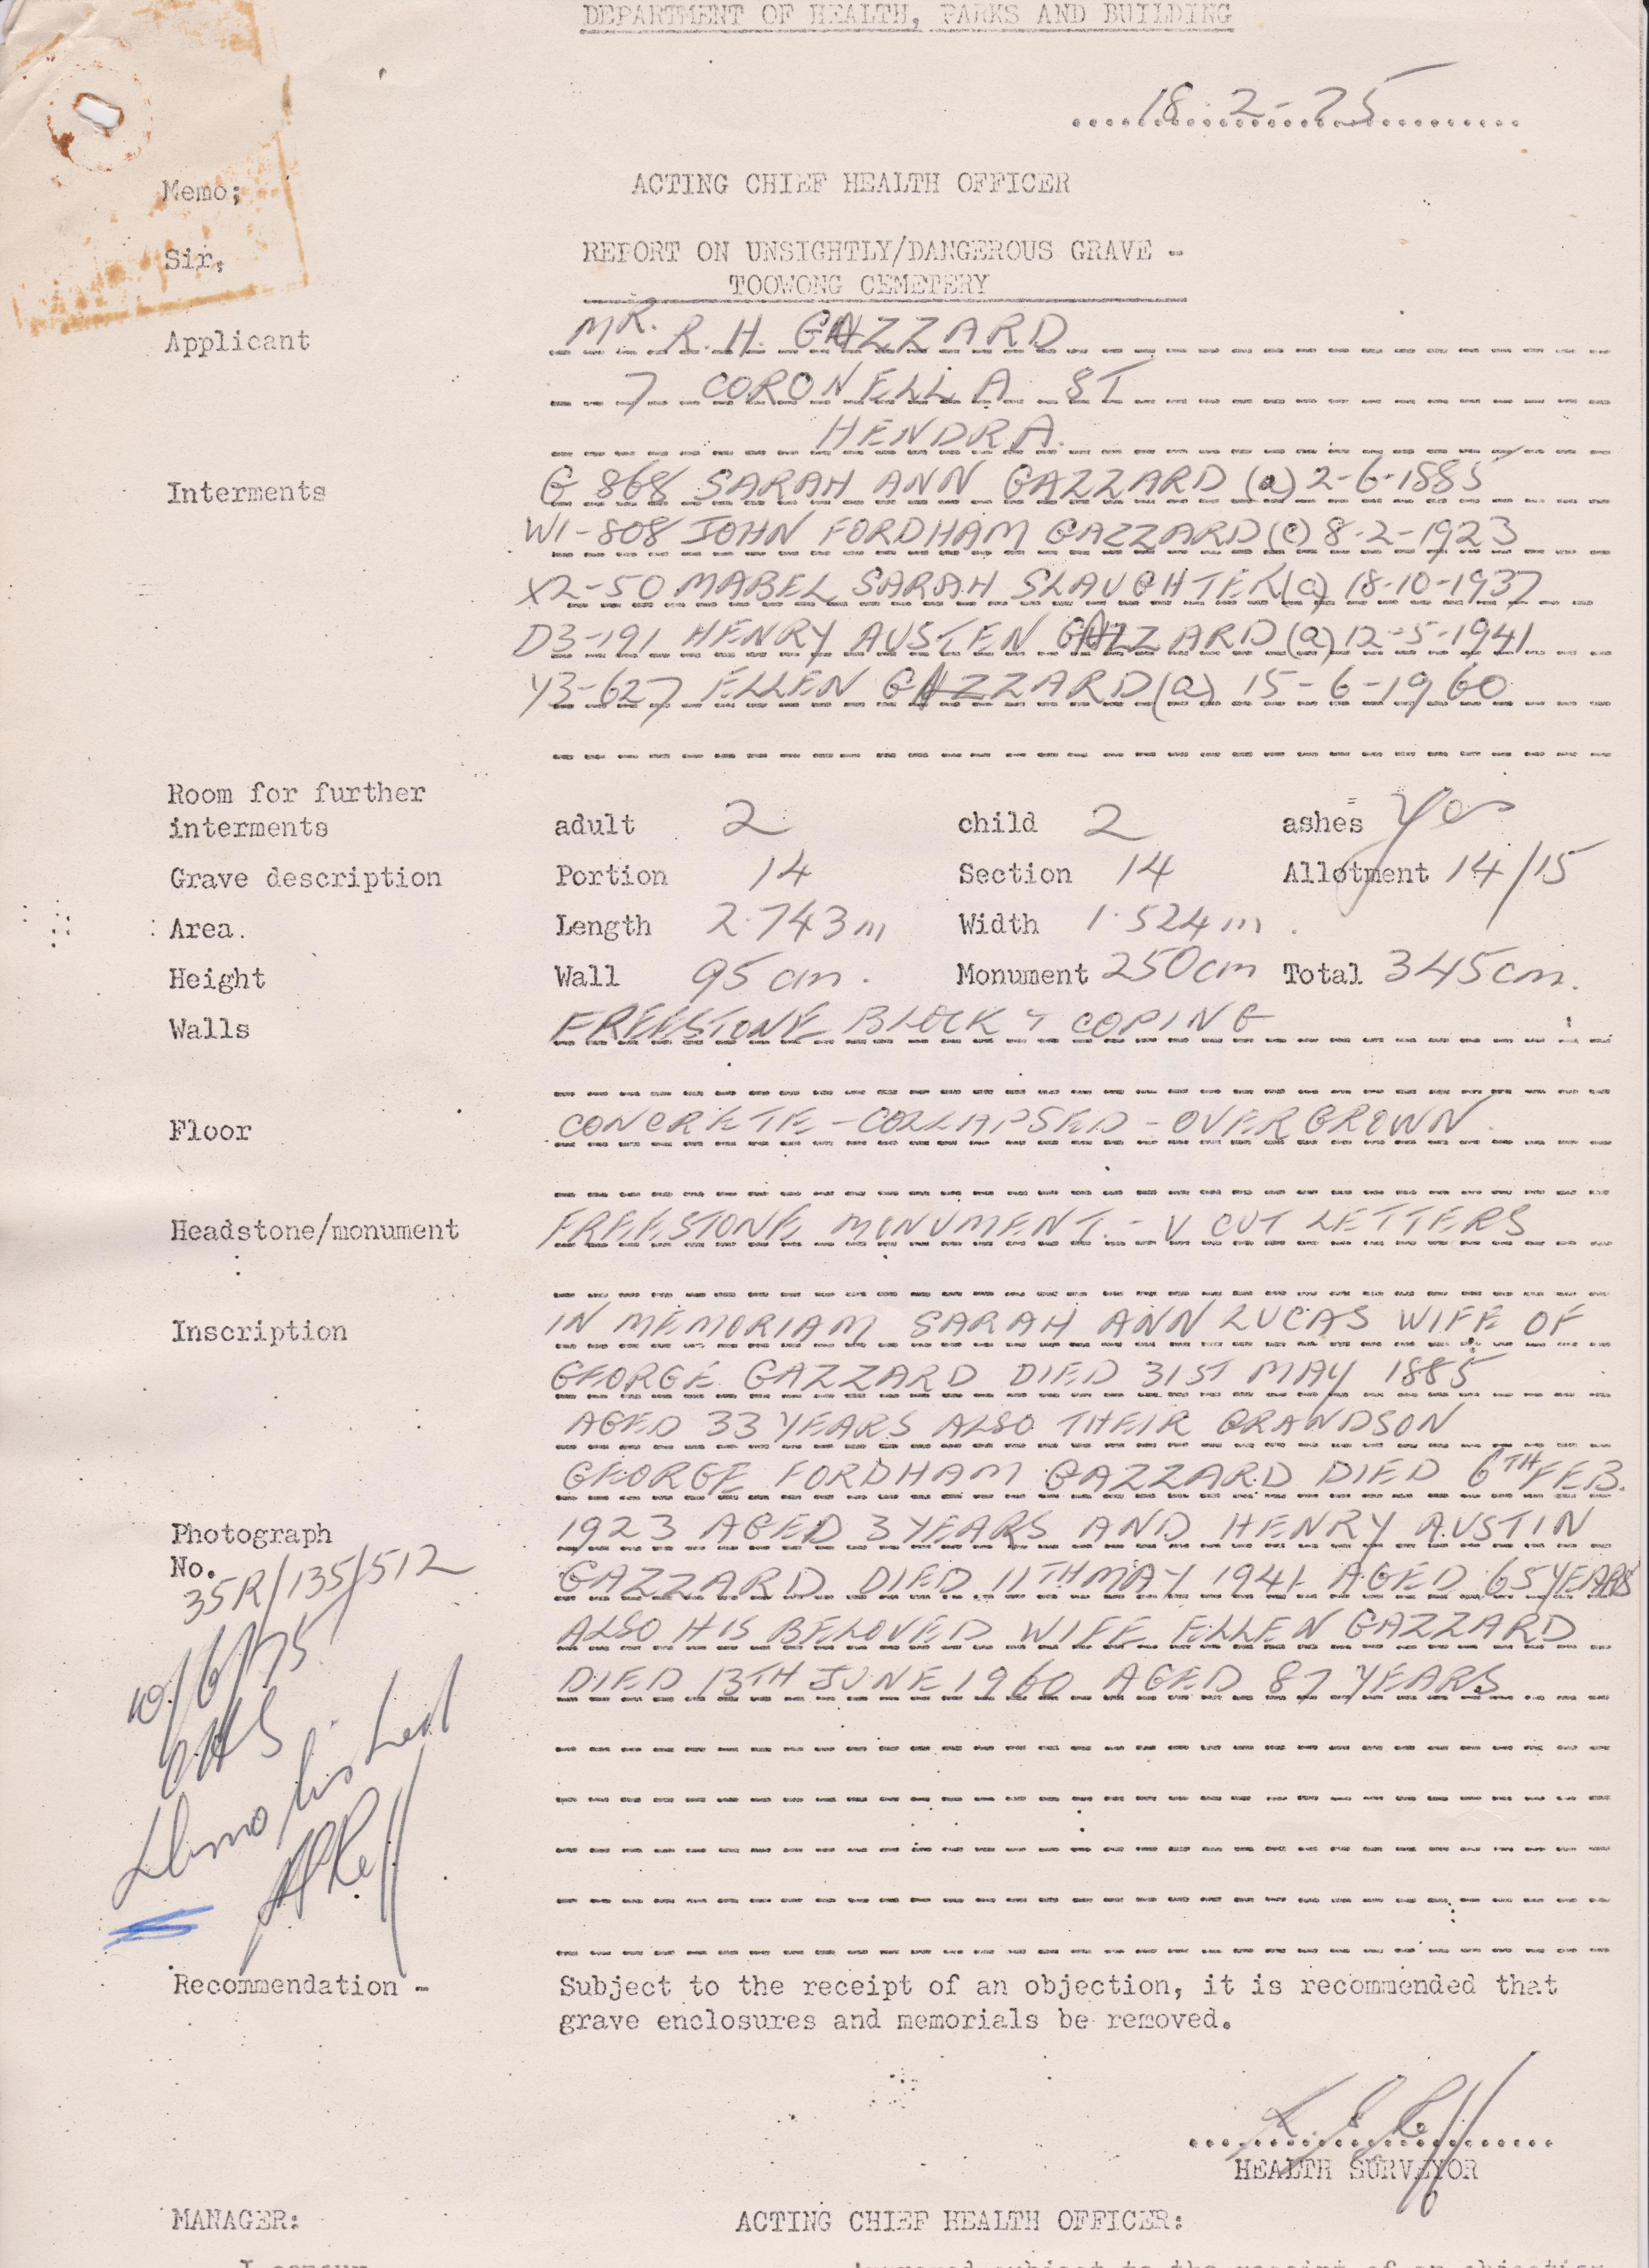 DEPARTMENT OF HEALTH, PARKS AND BUILDING
18-2-75
ACTING CHIEF HEALTH OFFICER
Memo;
Sir,
REPORT ON UNSIGHTLY/DANGEROUS GRAVE -
TOOWONG CEMETERY
Applicant MR. R. H. GAZZARD
7 CORONELLA ST
HENDRA.
Interments G 868 SARAH ANN GAZZARD (a) 2-6-1885
W1-808 JOHN FORDHAM GAZZARD (c) 8-2-1923
X2-50 MABEL SARAH SLAUGHTER (a) 18-10-1937
D3-191 HENRY AUSTEN GAZZARD (a) 12-5-1941
Y3-627 ELLEN GAZZARD (a) 15-6-1960
Room for further
interments adult 2 child 2 ashes Yes
Grave description Portion 14 Section 14 Allotment 14/15
Area. Length 2.743m Width 1.524m.
Height Wall 95cm. Monument 250cm Total 345cm.
Walls FREESTONE BLOCK & COPING
Floor CONCRETE - COLLAPSED - OVERGROWN.
Headstone/monument FREESTONE MONUMENT. - V CUT LETTERS
Inscription IN MEMORIAM SARAH ANN LUCAS WIFE OF
GEORGE GAZZARD DIED 31ST MAY 1885
AGED 33 YEARS ALSO THEIR GRANDSON
GEORGE FORDHAM GAZZARD DIED 6TH FEB.
Photograph 1923 AGED 3 YEARS AND HENRY AUSTIN
No. GAZZARD DIED 11TH MAY 1941 AGED 65 YEARS
35R/135/512
ALSO HIS BELOVED WIFE ELLEN GAZZARD
DIED 13TH JUNE 1960 AGED 87 YEARS
10/6/75
Demolished
Recommendation - Subject to the receipt of an objection, it is recommended that
grave enclosures and memorials be removed.
HEALTH SURVEYOR
MANAGER: ACTING CHIEF HEALTH OFFICER:
I concur